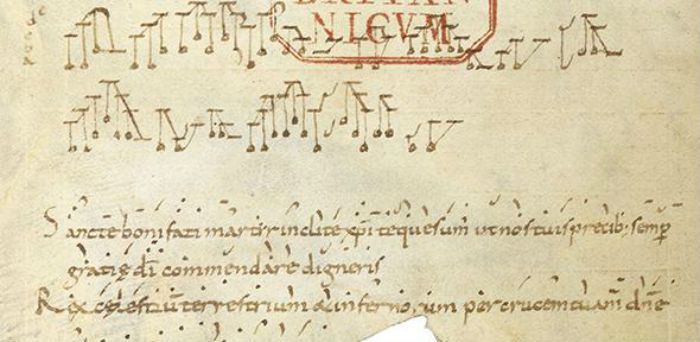 BRITAN
NICVM
Sancte bonifati martir inclite xp̄i te quesum ut nos tuis precib; semp̄
gratię dī commendare digneris
Rex cęlestiū terrestrium infernorum per crucem tuam dn̄e